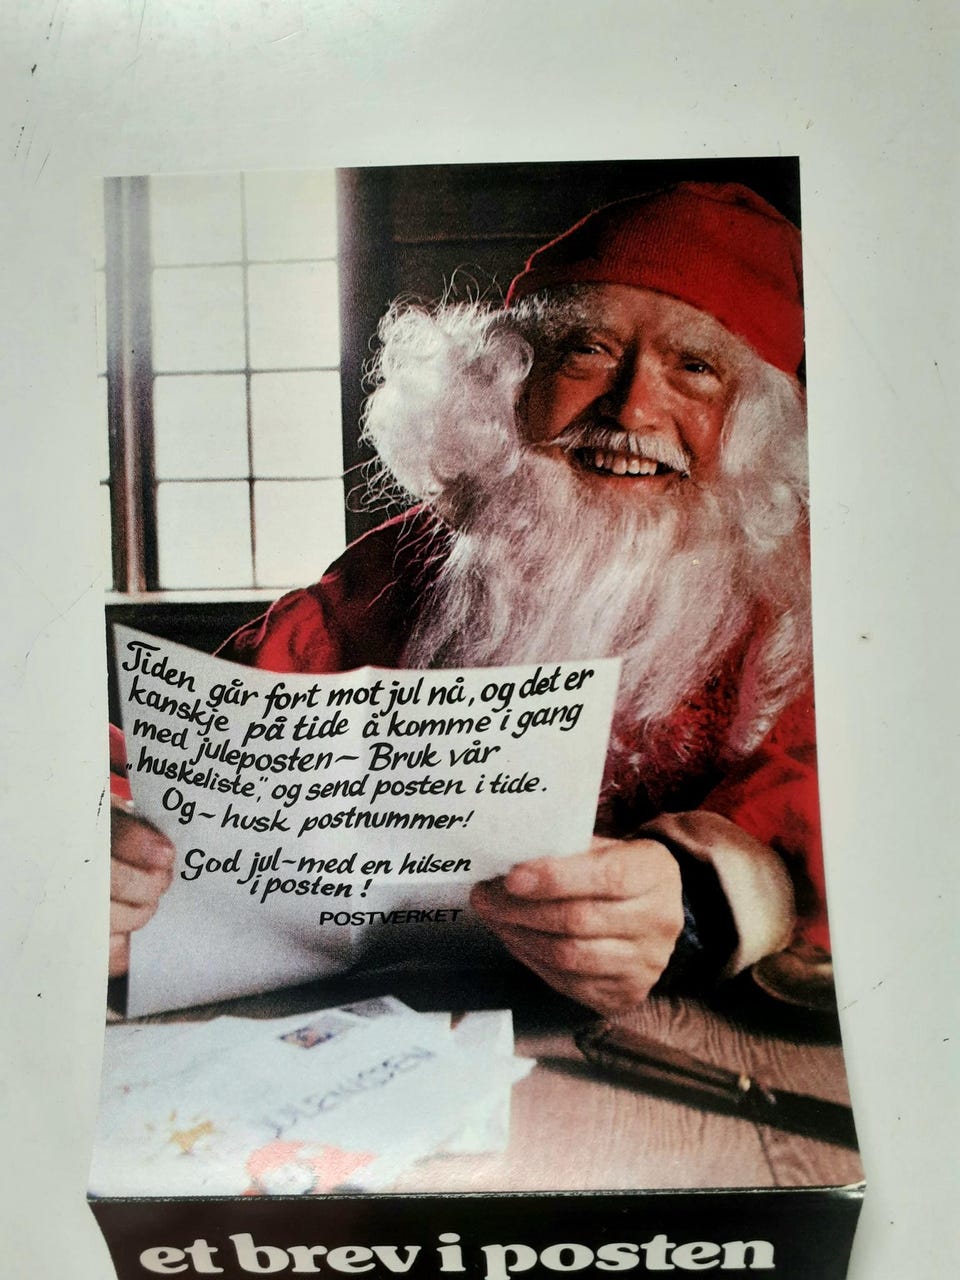 Tiden går fort mot jul nå, og det er
kanskje på tide å komme i gang
med juleposten~ Bruk vår
„huskeliste”, og send posten i tide.
Og~ husk postnummer!
God jul~med en hilsen
i posten!
POSTVERKET
JULENISSEN
et brev i posten